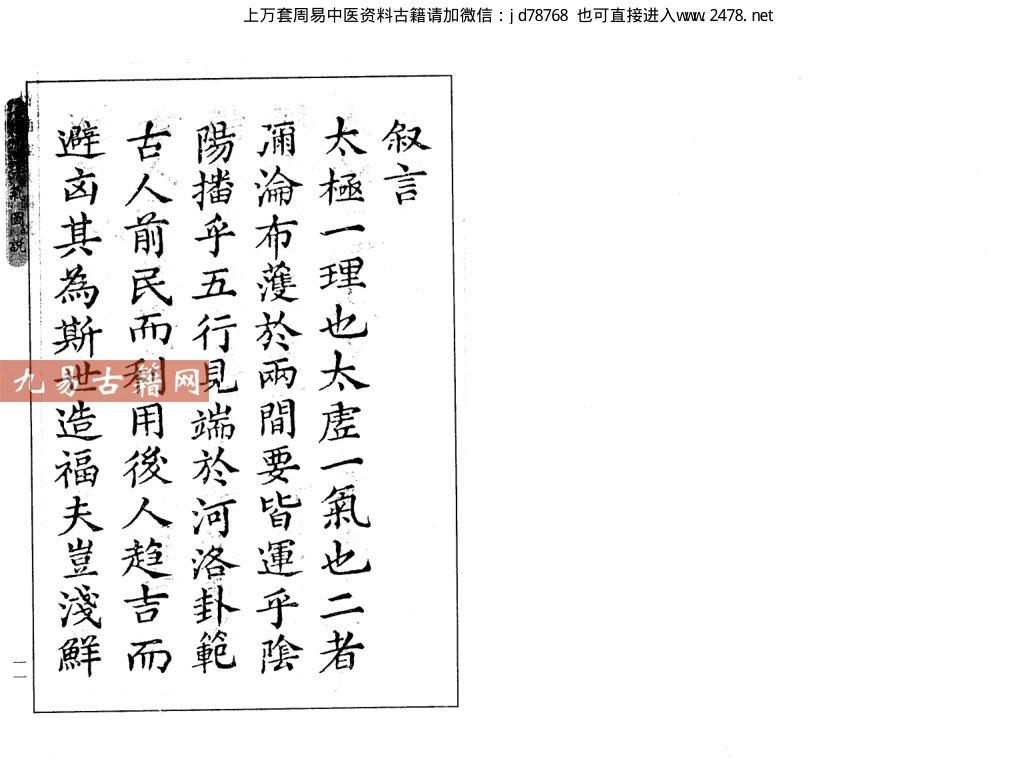 上万套周易中医资料古籍请加微信：jd78768 也可直接进入www.2478.net
叙言
太極一理也太虗一氣也二者
浦淪布濩於兩間要皆運乎陰
陽播乎五行見端於河洛卦範
古人前民而利用後人趋吉而
避凶其為斯世造福夫豈淺鮮
圖說
一一
九易古籍网